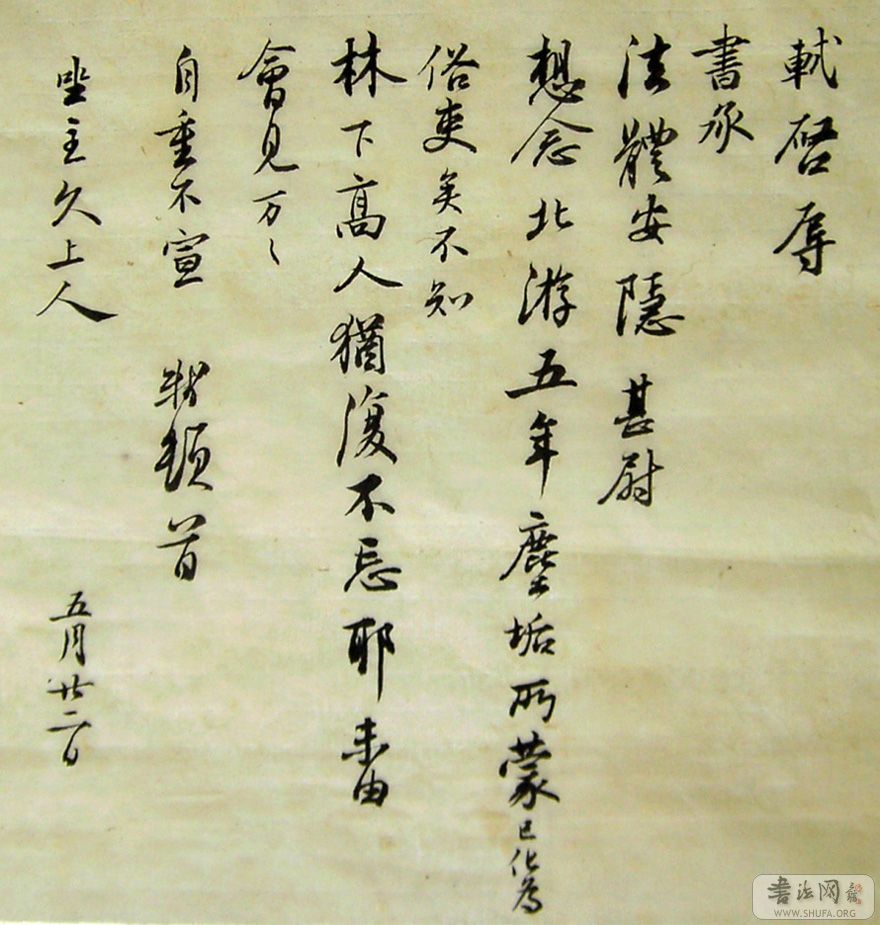 軾啓辱
書承
法體安隱甚尉
想念北游五年塵垢所蒙已化為
俗吏矣不知
林下高人猶復不忘耶未由
會見万〻
自重不宣 軾頓首
坐主久上人 五月廿二日
書法网
WWW.SHUFA.ORG